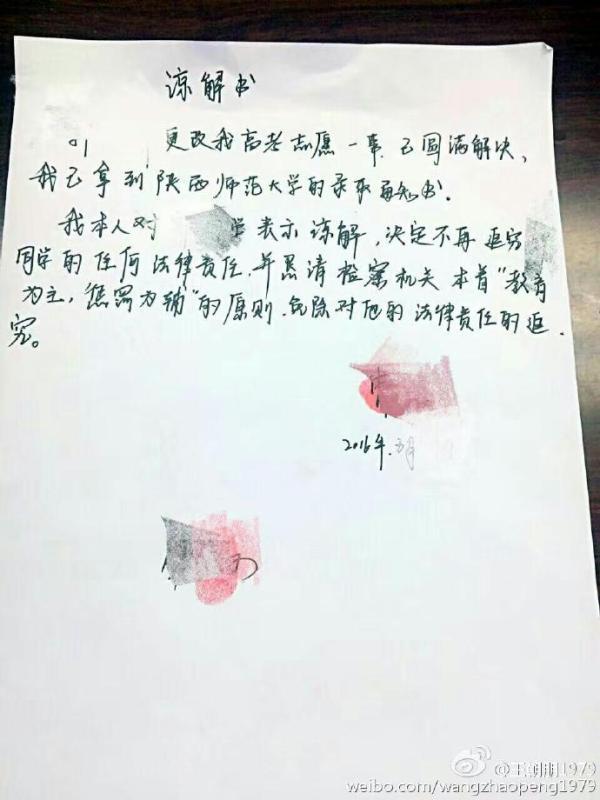 谅解书
更改我高考志愿一事已圆满解决,
我已拿到陕西师范大学的录取通知书.
我本人对 学表示谅解,决定不再追究
同学的任何法律责任,并恳请检察机关本着“教育
为主,惩罚为辅”的原则,免除对他的法律责任的追
究。
2016年.
@王朝朋1979
weibo.com/wangzhaopeng1979